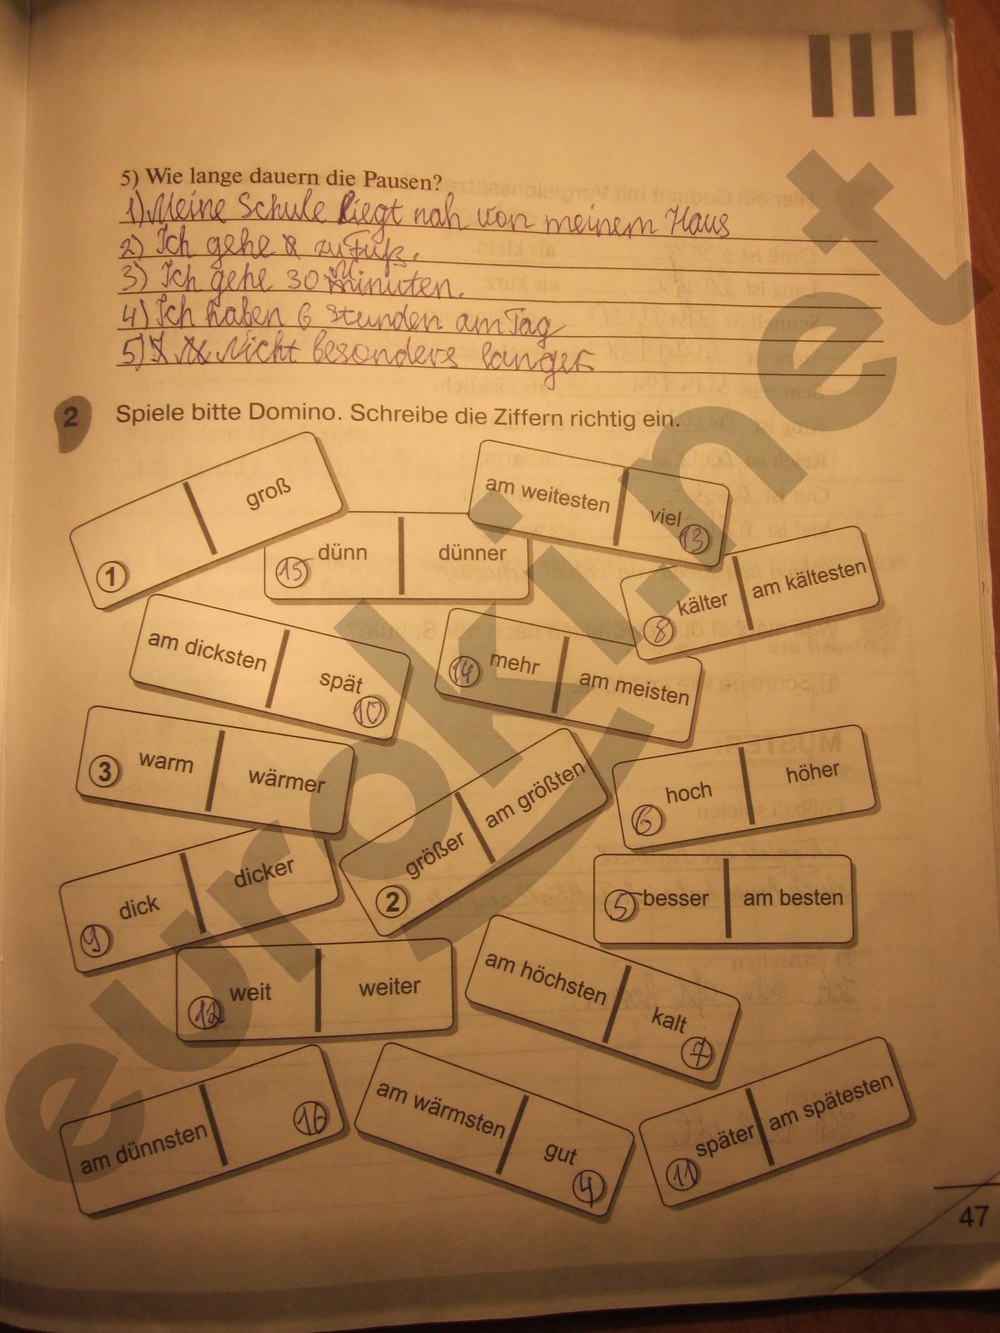 III
5) Wie lange dauern die Pausen?
1) Meine Schule liegt nah von meinem Haus
2) Ich gehe zu Fuß.
3) Ich gehe 30 Minuten.
4) Ich haben 6 Stunden am Tag
5) Nicht besonders langer
2 Spiele bitte Domino. Schreibe die Ziffern richtig ein.
1 groß
am weitesten viel 13
15 dünn dünner
8 kälter am kältesten
am dicksten spät 10
14 mehr am meisten
3 warm wärmer
2 größer am größten
6 hoch höher
9 dick dicker
5 besser am besten
12 weit weiter
am höchsten kalt 7
am dünnsten 16
am wärmsten gut 4
11 später am spätesten
47
euroki.net